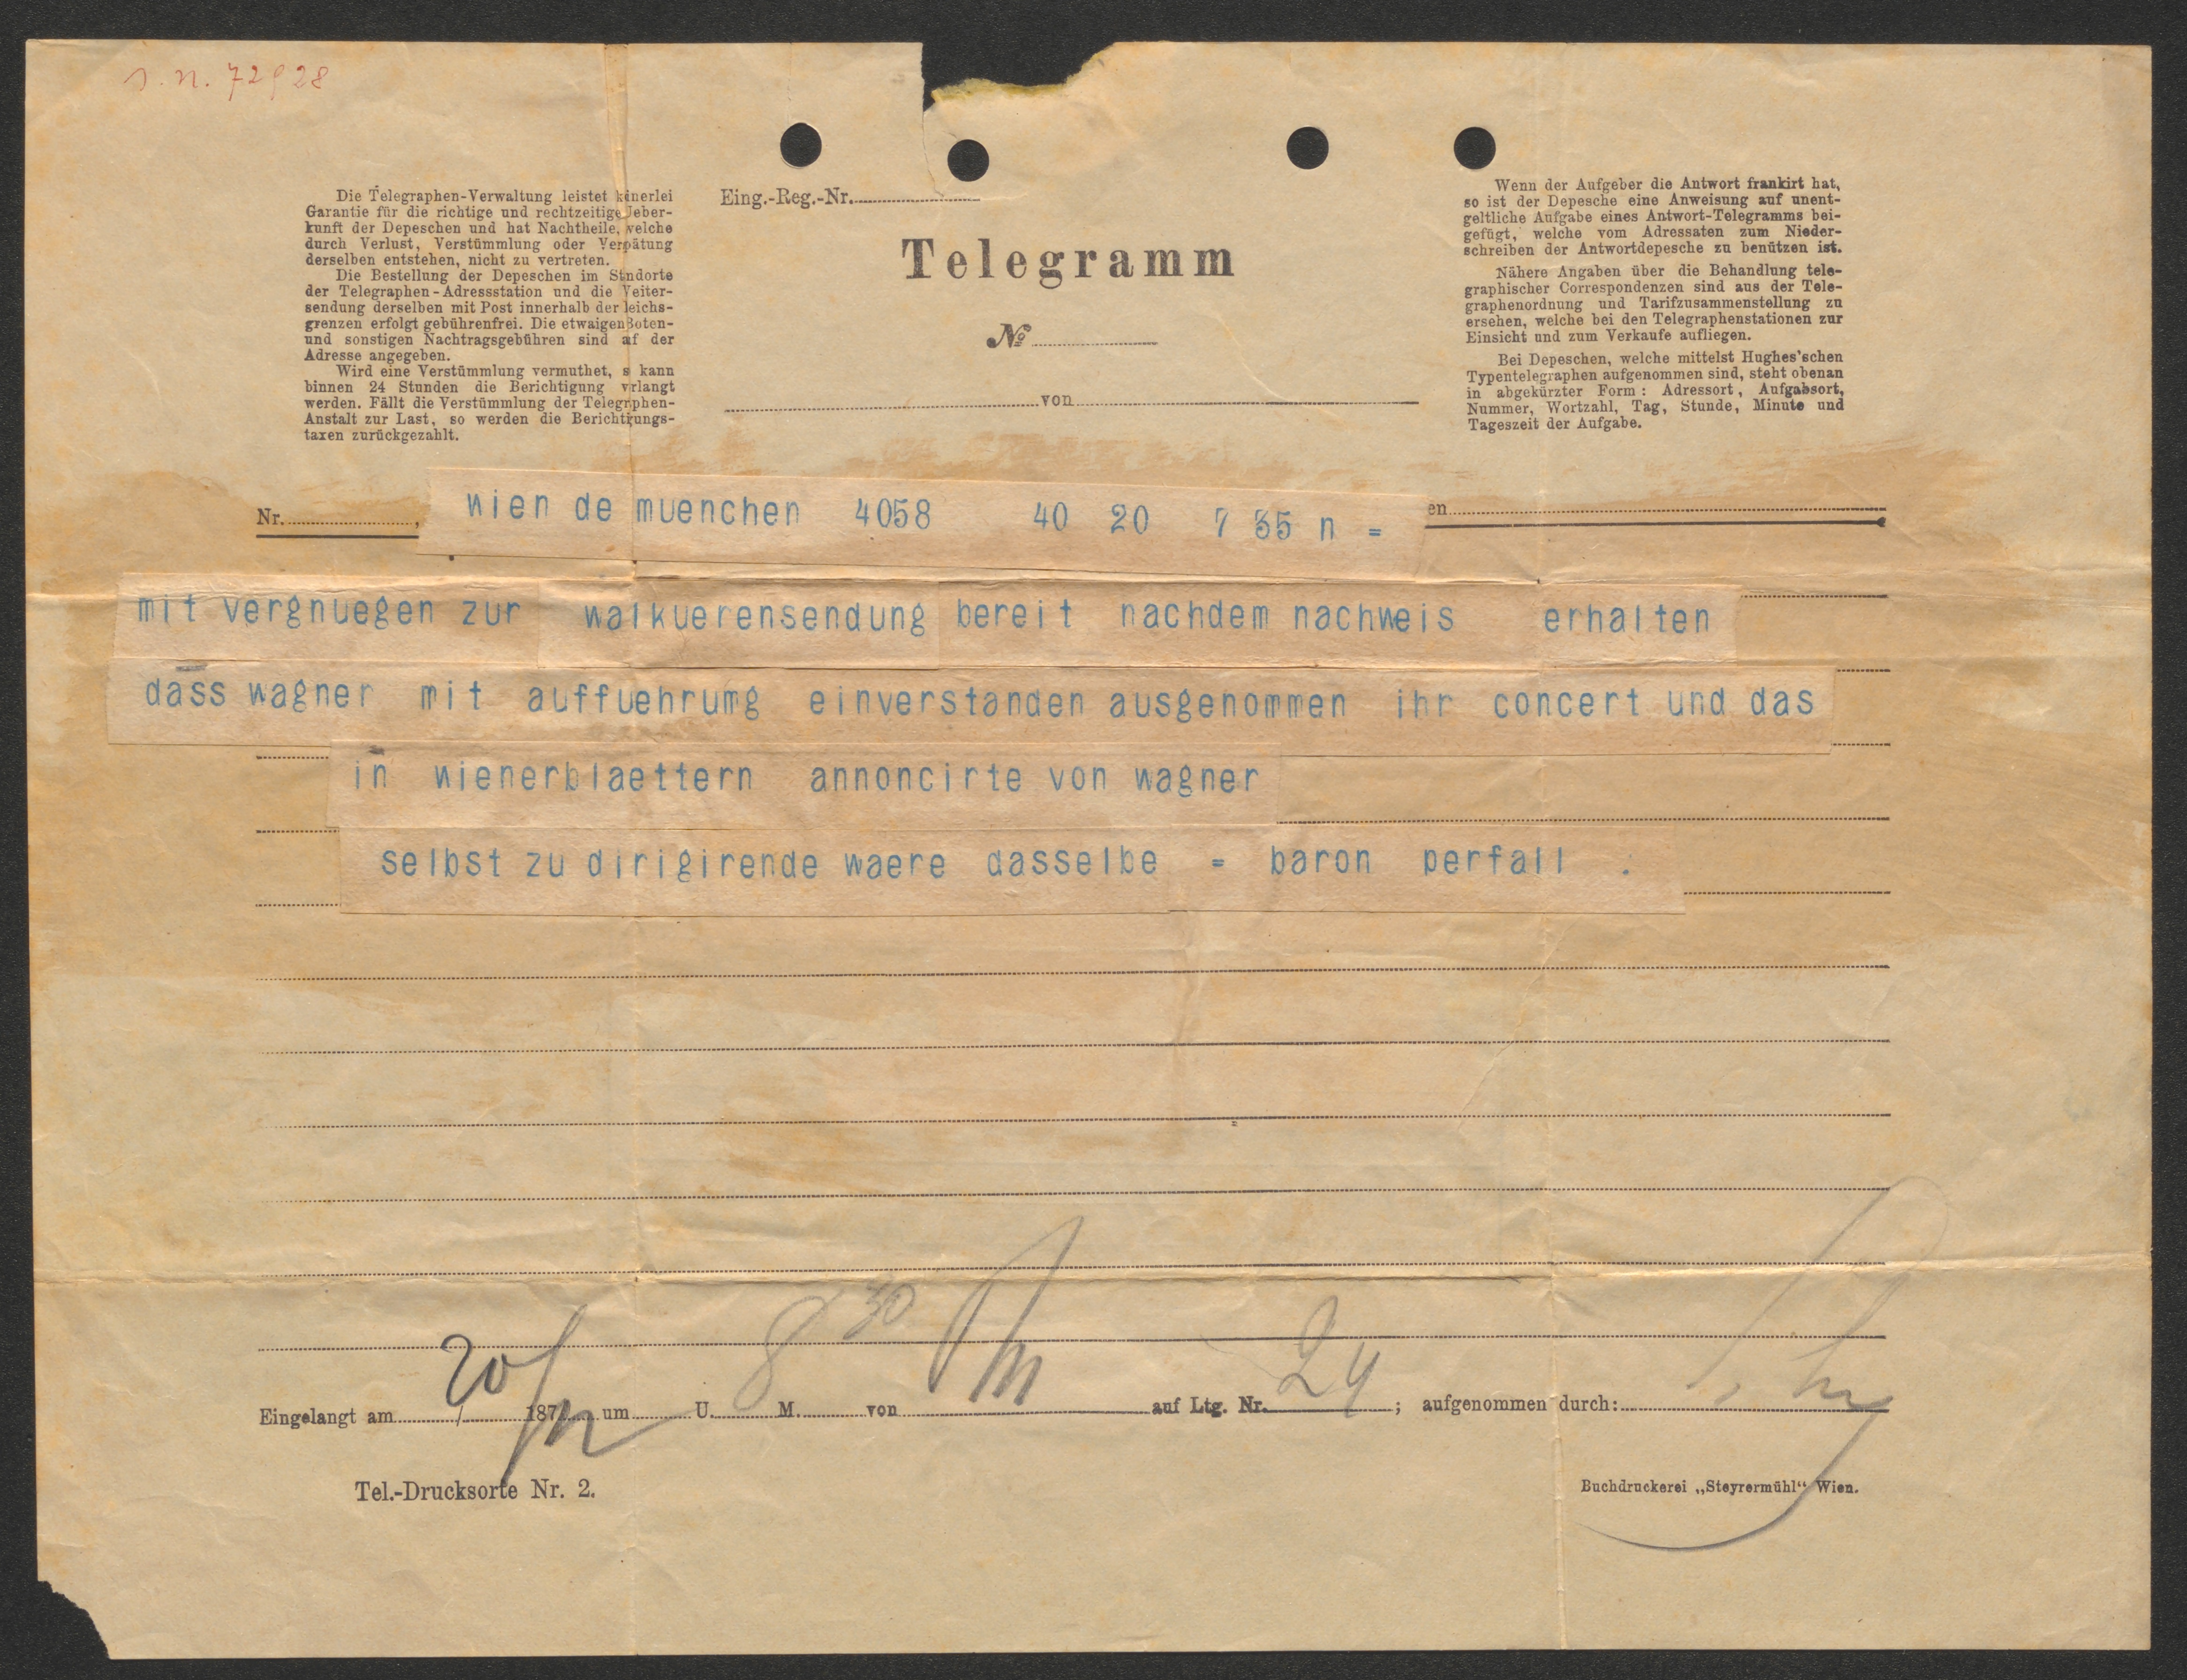 J. N. 72928
Die Telegraphen-Verwaltung leistet keinerlei
Garantie für die richtige und rechtzeitige Ueber-
kunft der Depeschen und hat Nachtheile, welche
durch Verlust, Verstümmlung oder Verspätung
derselben entstehen, nicht zu vertreten.
Die Bestellung der Depeschen im Standorte
der Telegraphen-Adressstation und die Weiter-
sendung derselben mit Post innerhalb der Reichs-
grenzen erfolgt gebührenfrei. Die etwaigen Boten-
und sonstigen Nachtragsgebühren sind auf der
Adresse angegeben.
Wird eine Verstümmlung vermuthet, so kann
binnen 24 Stunden die Berichtigung verlangt
werden. Fällt die Verstümmlung der Telegraphen-
Anstalt zur Last, so werden die Berichtigungs-
taxen zurückgezahlt.
Eing.-Reg.-Nr.
Telegramm
No
von
Wenn der Aufgeber die Antwort frankirt hat,
so ist der Depesche eine Anweisung auf unent-
geltliche Aufgabe eines Antwort-Telegramms bei-
gefügt, welche vom Adressaten zum Nieder-
schreiben der Antwortdepesche zu benützen ist.
Nähere Angaben über die Behandlung tele-
graphischer Correspondenzen sind aus der Tele-
graphenordnung und Tarifzusammenstellung zu
ersehen, welche bei den Telegraphenstationen zur
Einsicht und zum Verkaufe aufliegen.
Bei Depeschen, welche mittelst Hughes'schen
Typentelegraphen aufgenommen sind, steht obenan
in abgekürzter Form: Adressort, Aufgabsort,
Nummer, Wortzahl, Tag, Stunde, Minute und
Tageszeit der Aufgabe.
Nr. , wien de muenchen 4058 40 20 7 35 n = en
mit vergnuegen zur walkuerensendung bereit nachdem nachweis erhalten
dass wagner mit auffuehrumg einverstanden ausgenommen ihr concert und das
in wienerblaettern annoncirte von wagner
selbst zu dirigirende waere dasselbe = baron perfall .
Eingelangt am 20/12 187 um U. 8 30 M. von auf Ltg. Nr. 24 ; aufgenommen durch:
Tel.-Drucksorte Nr. 2.
Buchdruckerei „Steyrermühl“ Wien.